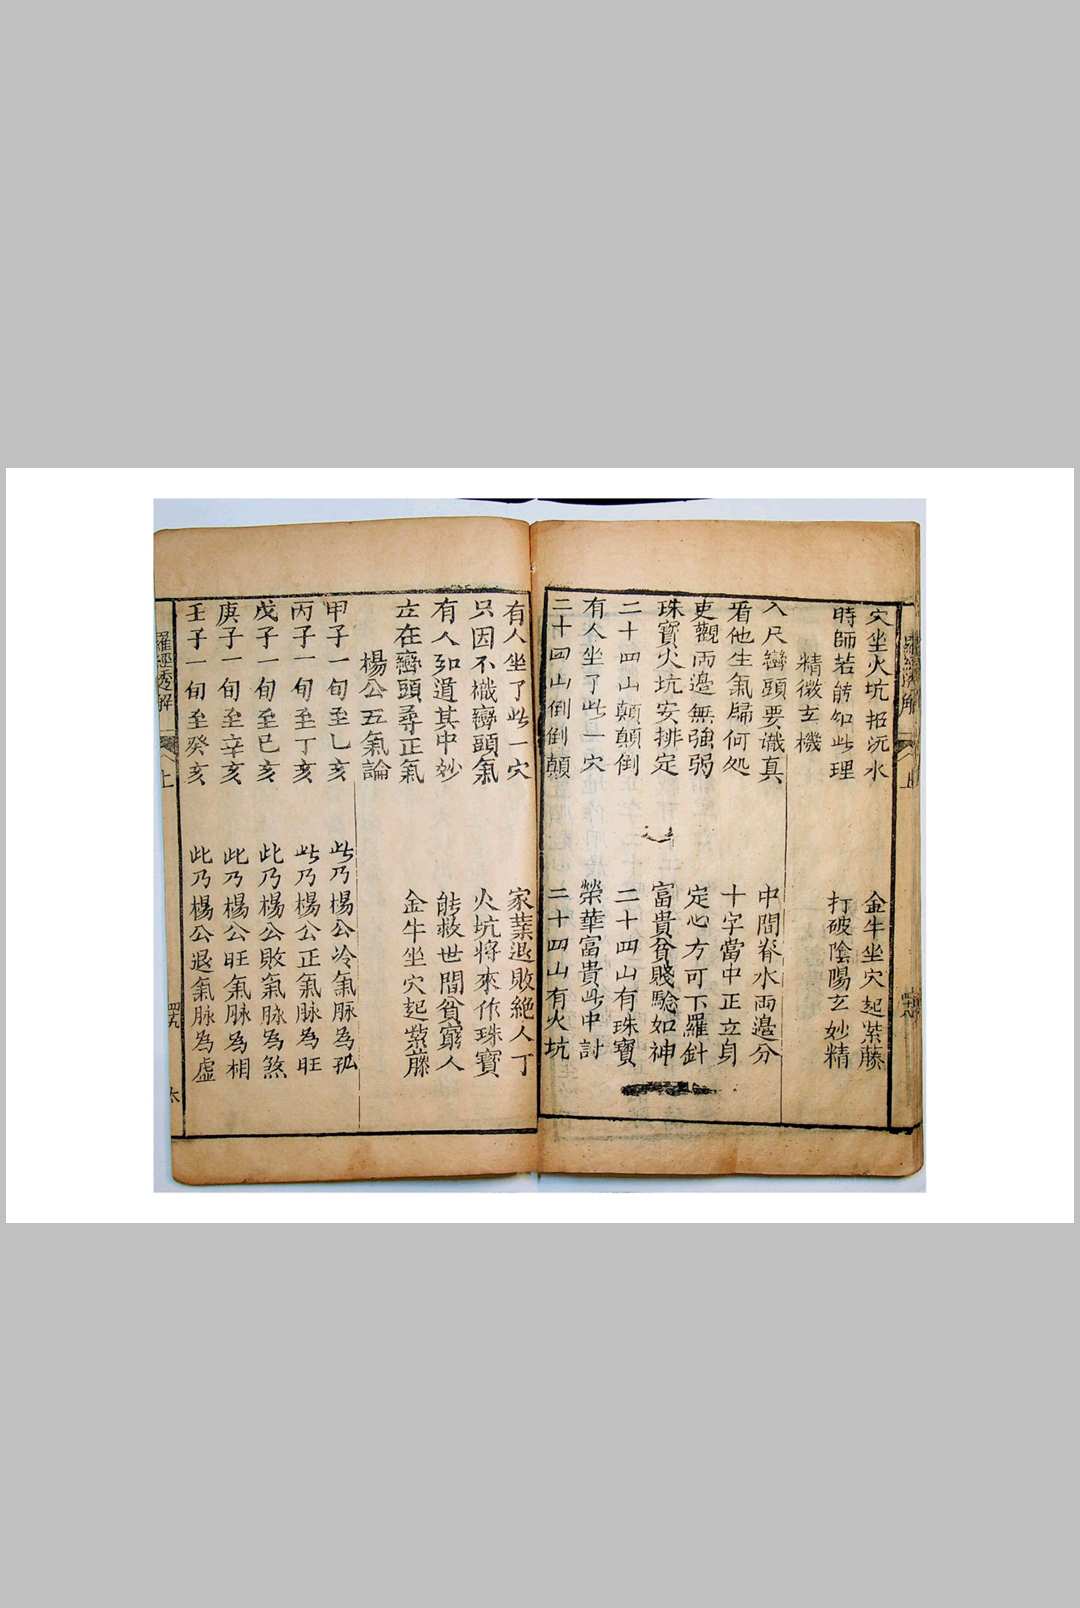 穴坐火坑招沅水　金牛坐穴起紫藤
時師若能知此理　打破陰陽玄妙精
精微玄機
入尺巒頭要識真　中間脊水両邉分
看他生氣歸何処　十字當中正立身
更觀両邉無強弱　定心方可下羅針
珠寶火坑安排定　富貴貧賤驗如神
二十四山顛顛倒　二十四山有珠寶
有人坐了此一穴　榮華富貴此中討
二十四山倒倒顛　二十四山有火坑
有人坐了此一穴　家業退敗絶人丁
只因不識巒頭氣　火坑將來作珠寶
有人知道其中妙　能救世間貧窮人
立在巒頭尋正氣　金牛坐穴起紫藤
楊公五氣論
甲子一旬至乙亥　此乃楊公冷氣脉為孤
丙子一旬至丁亥　此乃楊公正氣脉為旺
戊子一旬至已亥　此乃楊公敗氣脉為煞
庚子一旬至辛亥　此乃楊公旺氣脉為相
壬子一旬至癸亥　此乃楊公退氣脉為虛
羅經秀解　上　四九